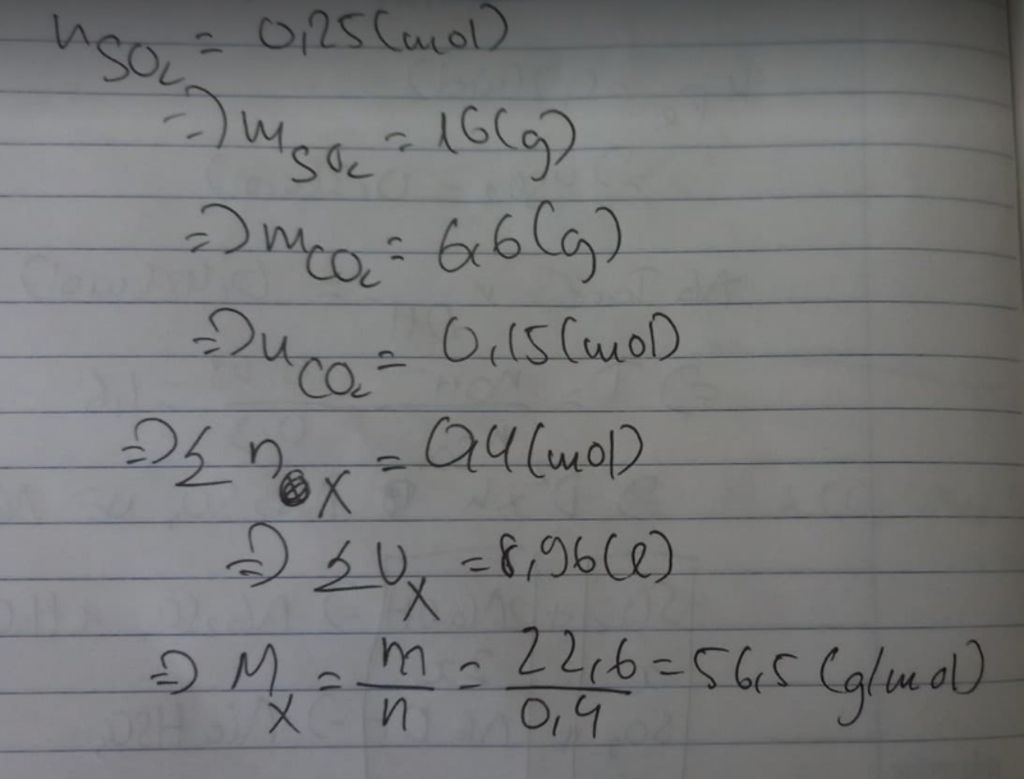 n_SO₂ = 0,25(mol)
=> m_SO₂ = 16(g)
=> m_CO₂ = 6,6(g)
=> n_CO₂ = 0,15(mol)
=> Σ n_X = 0,4(mol)
=> Σ V_X = 8,96(l)
=> M_X = m/n = 22,6/0,4 = 56,5 (g/mol)